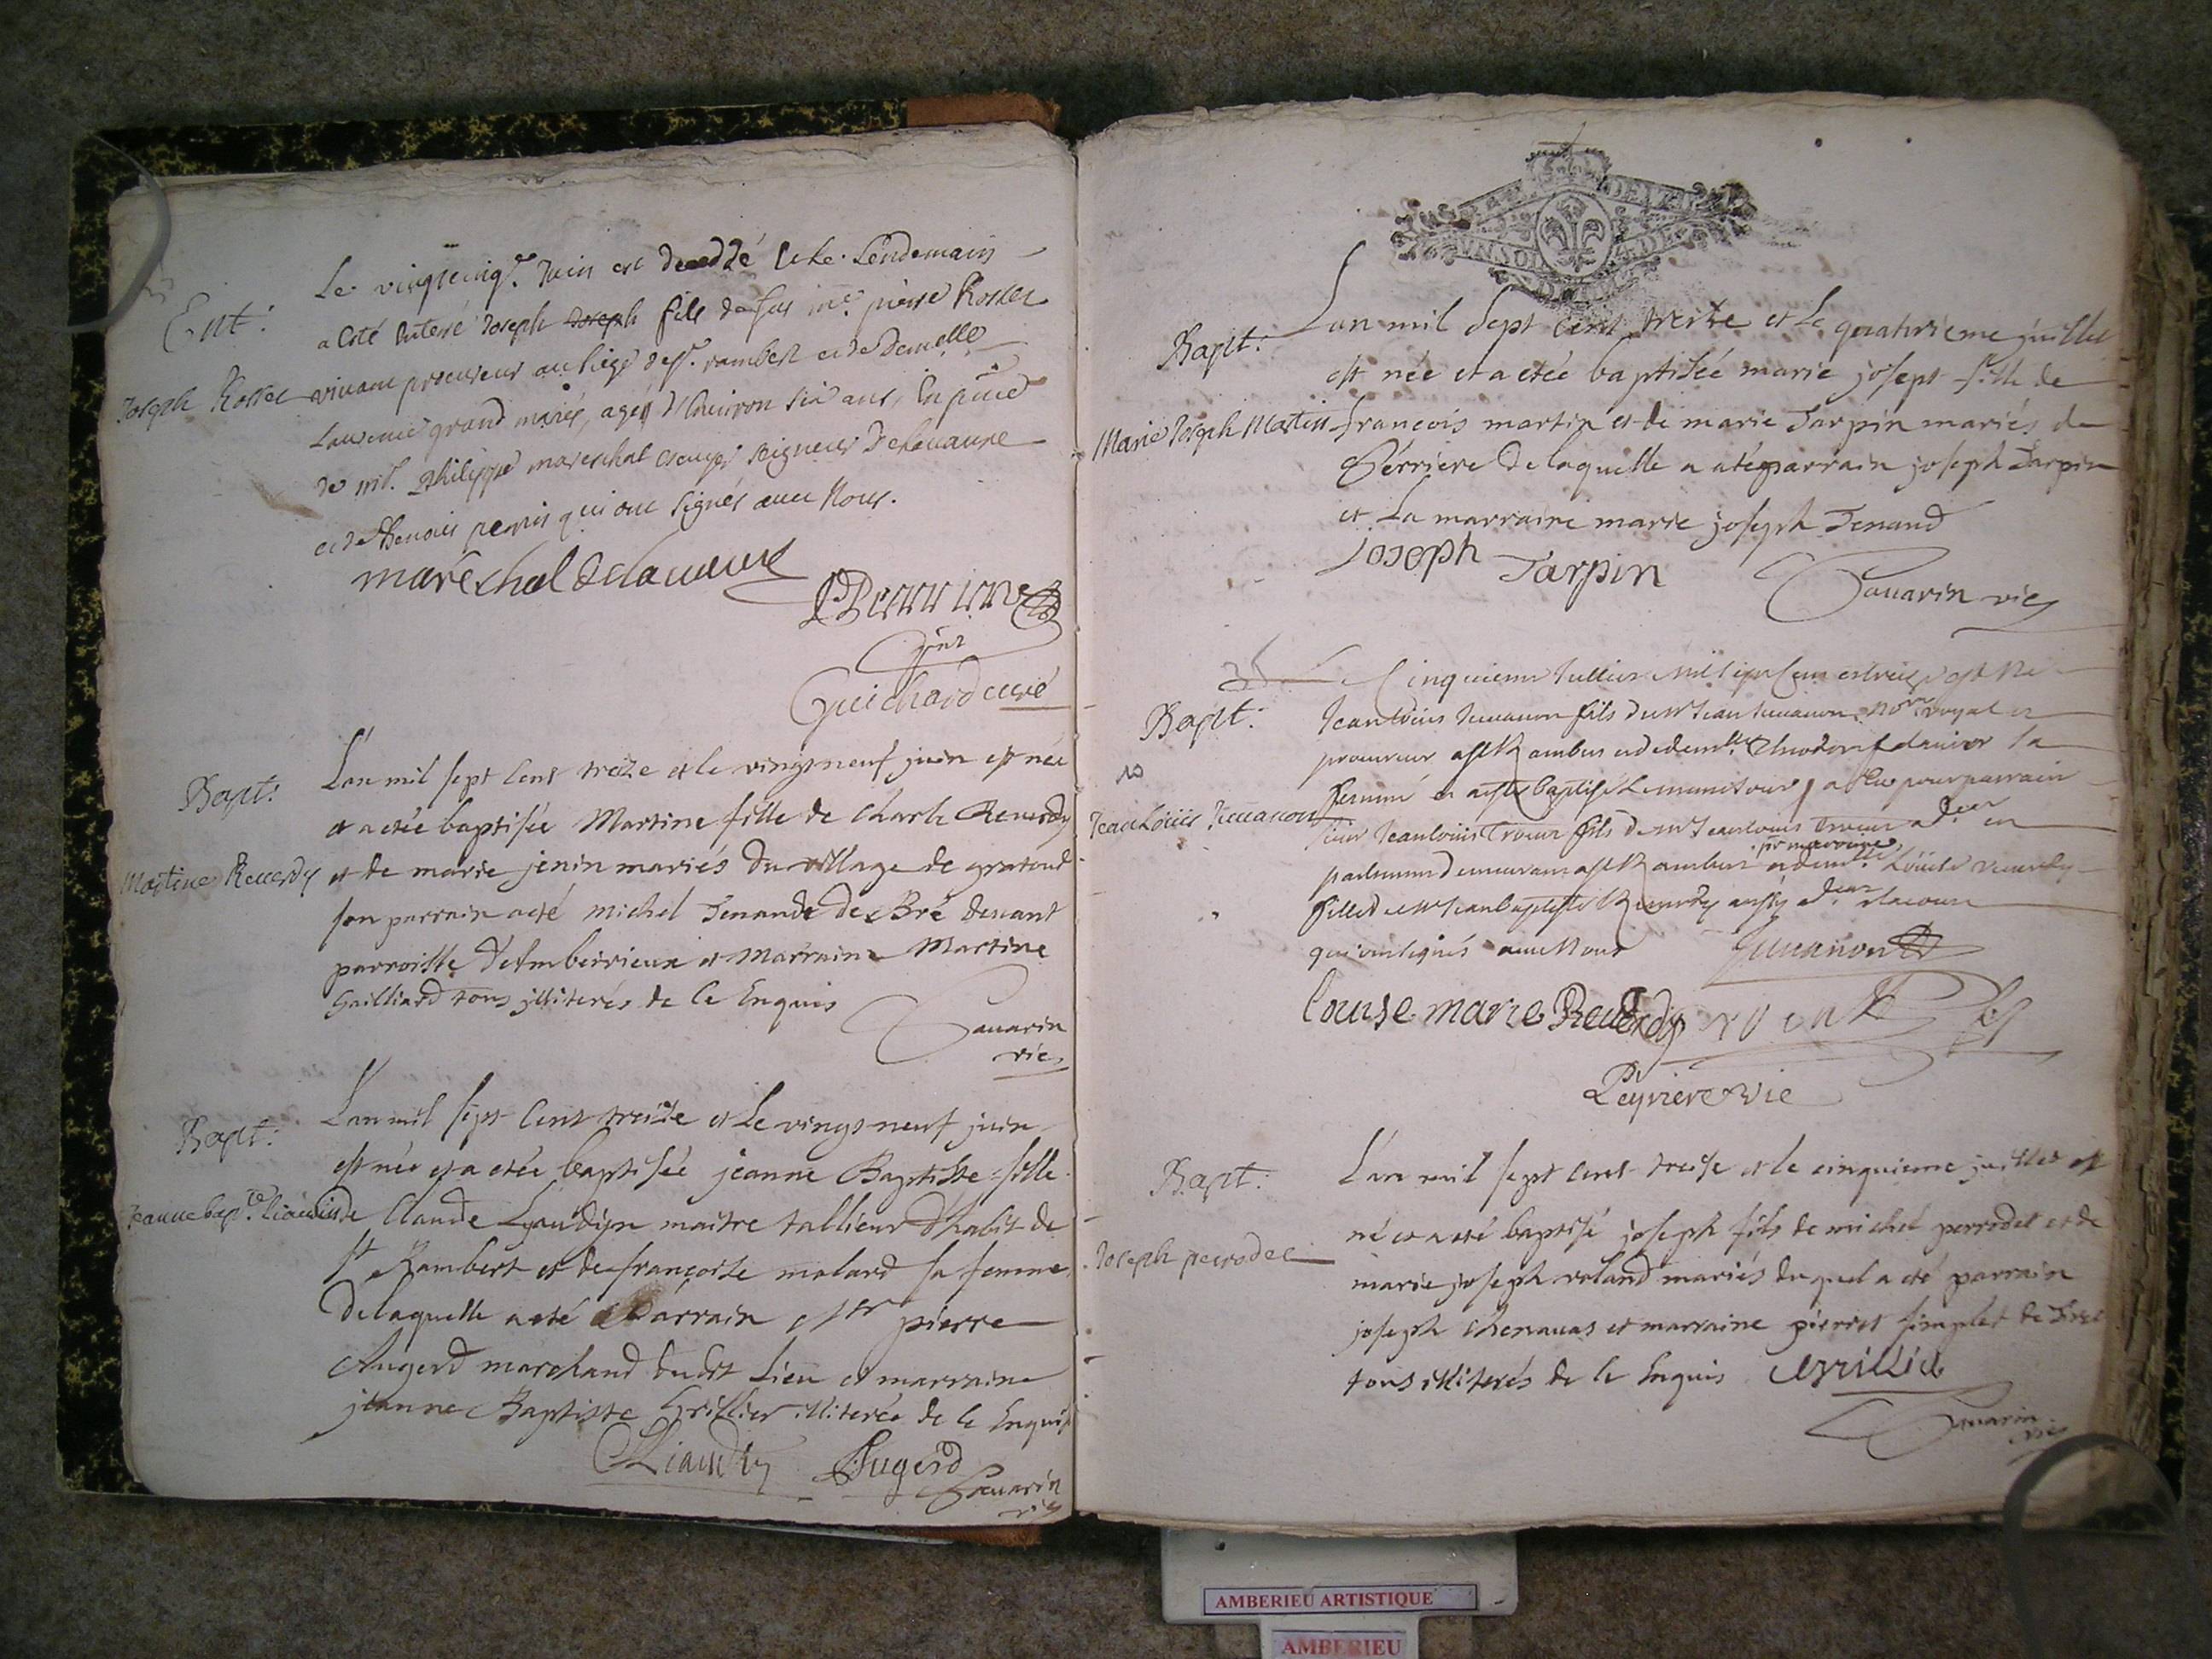 Le vingtcinq.e Juin est decedé et le Lendemain
Ent:
a esté enteré Joseph Joseph fils de feu me. pierre Rosset
Joseph Rosset
vivant procureur au siege de st. rambert et de demelle
Laurence grand mariés, agé d'environ six ans, En pnce
de mr. Philippe mareschal escuyer seigneur
et de benois perrin qui ont signés avec Nous.
marechal delavavre
Guichard curé
Bapt:
L'an mil sept cent treize et le vingt neuf juin est née
et a étée baptisée Martine fille de Charle Reverdy
Martine Reverdy
et de marie jenin mariés du village de gratoud
son parrain a eté michel Tenand de Bré devant
parroisse d'Amberieux et Marraine Martine
Gailliard tous illiterés de ce Enquis
Savarin
vic
Bapt:
L'an mil sept cent treize et Le vingt neuf juin
est née et a étée baptisée jeanne Baptiste fille
Jeanne bapte. Liaudin
de Claude Lyaudin maitre tallieur d'habit de
st Rambert et de françoise molard sa femme
de laquelle a eté Parrain sr pierre
Augerd marchand dudit Lieu et marraine
jeanne Baptiste Grillier illiterée de ce Enquis
CLiaudin Augerd
Savarin
vic
L'an mil sept cent treize et Le quatrieme juillet
Bapt:
est née et a étée baptisée marie joseph fille de
Marie Joseph Martin
françois martin et de marie Tarpin mariés de
Serriere de laquelle a eté parrain joseph Tarpin
et La marraine marie joseph Tenand
Joseph Tarpin
Savarin vic
Le Cinquieme Juillet mil sept Cent et treize est Né
Bapt:
Jean Loüis Juvanon fils de mr Jean Juvanon Nore royal et
procureur a st Rambert et de demlle
femme et a esté baptisé a eu pour parrain
Jean Loüis Juvanon
sieur Jean louis Trocu fils de mr Jean louis Trocu adt en
parlement demeurant a st Rambert et demlle Loüise reverdy
pr marraine
fille de mr Jean baptiste Reverdy aussy adt
qui ont signés avec Nous Juvanon
Louise marie Reverdy
Peyriere vic
Bapt:
L'an mil sept cent treize et le cinquieme juillet est
né et a eté baptisé joseph fils de michel perrodet et de
Joseph perrodet
marie joseph roland mariés duquel a eté parrain
joseph chenavas et marraine pierret simplet de
tous illiterés de ce Enquis
Savarin
vic
AMBERIEU ARTISTIQUE
AMBERIEU